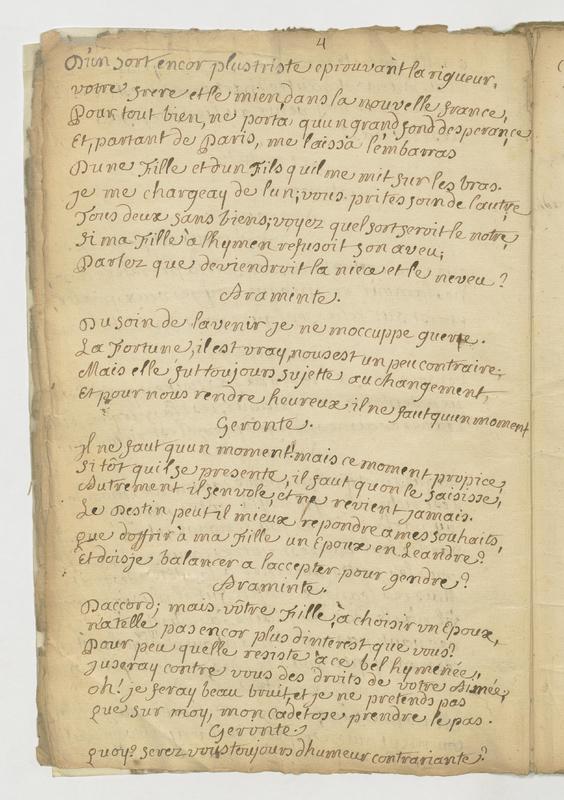 4
D'un sort encor plus triste eprouvant la rigueur,
votre frere et le mien, dans la nouvelle france,
Pour tout bien, ne porta qu'un grand fond desperance
Et, partant de Paris, me laissa lembarras
Dune Fille et dun Fils quil me mit sur les bras.
je me chargeay de lun; vous prites soin de l'autre
Tous deux sans biens; voyez quel sort seroit le notre,
Si ma Fille à lhymen refusoit son aveu;
Parlez que deviendroit la niece et le neveu?
Araminte.
Du soin de lavenir je ne moccuppe guere.
La Fortune, il est vray, nous est un peu contraire;
Mais elle fut toujours sujette au changement,
Et pour nous rendre heureux il ne faut qu'un moment
Geronte.
Il ne faut quun moment! mais ce moment propice,
Si tôt quil se presente, il faut quon le saisisse,
Autrement il senvole, et ne revient jamais.
Le Destin peut il mieux repondre a mes souhaits,
que doffrir à ma Fille un Epoux en Leandre?
Et doisje balancer a laccepter pour gendre?
Araminte.
Daccord; mais vôtre Fille, à choisir un Epoux,
n'a telle pas encor plus dinterest que vous?
Pour peu quelle resiste à ce bel hymenée,
Juseray contre vous des droits de votre Ainée;
oh! je feray beau bruit, et je ne pretends pas
que sur moy, mon cadet ose prendre le pas.
Geronte
quoy? serez vous toujours dhumeur contrariante?